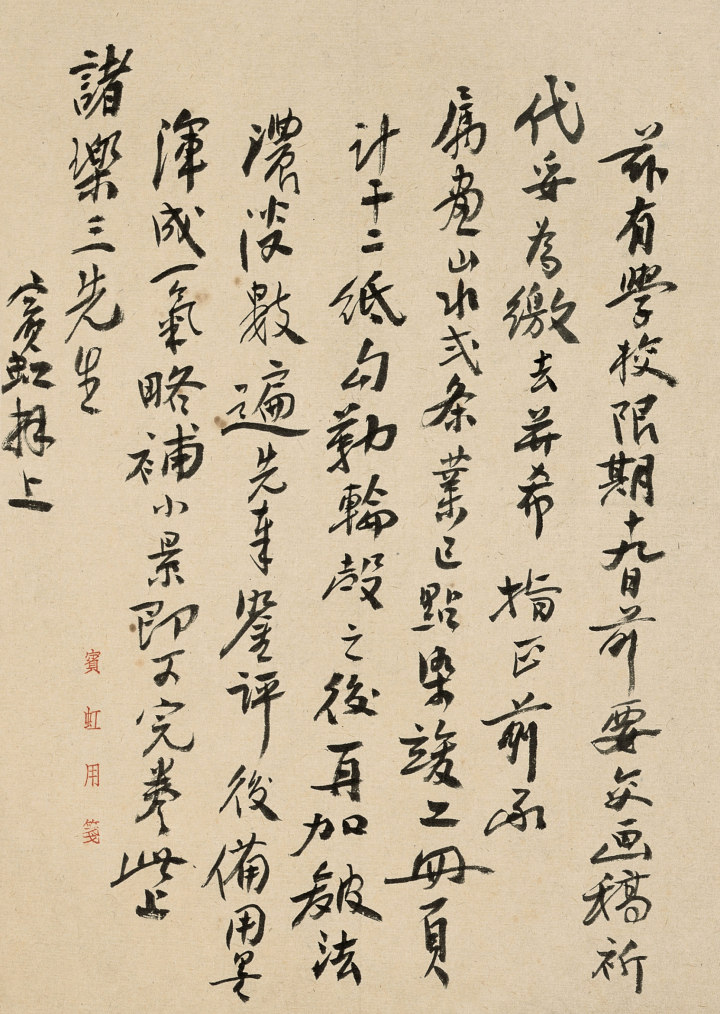 兹有學校限期十九日前要交画稿祈
代妥為繳去并希指正前承
属畫山水弍条業已點染竣工冊頁
計十二紙勾勒輪殼之後再加皴法
濃淡數遍先奉鑒評後備用墨
渾成一氣略補小景即可完卷此上
諸樂三先生
賓虹拜上
賓虹用箋